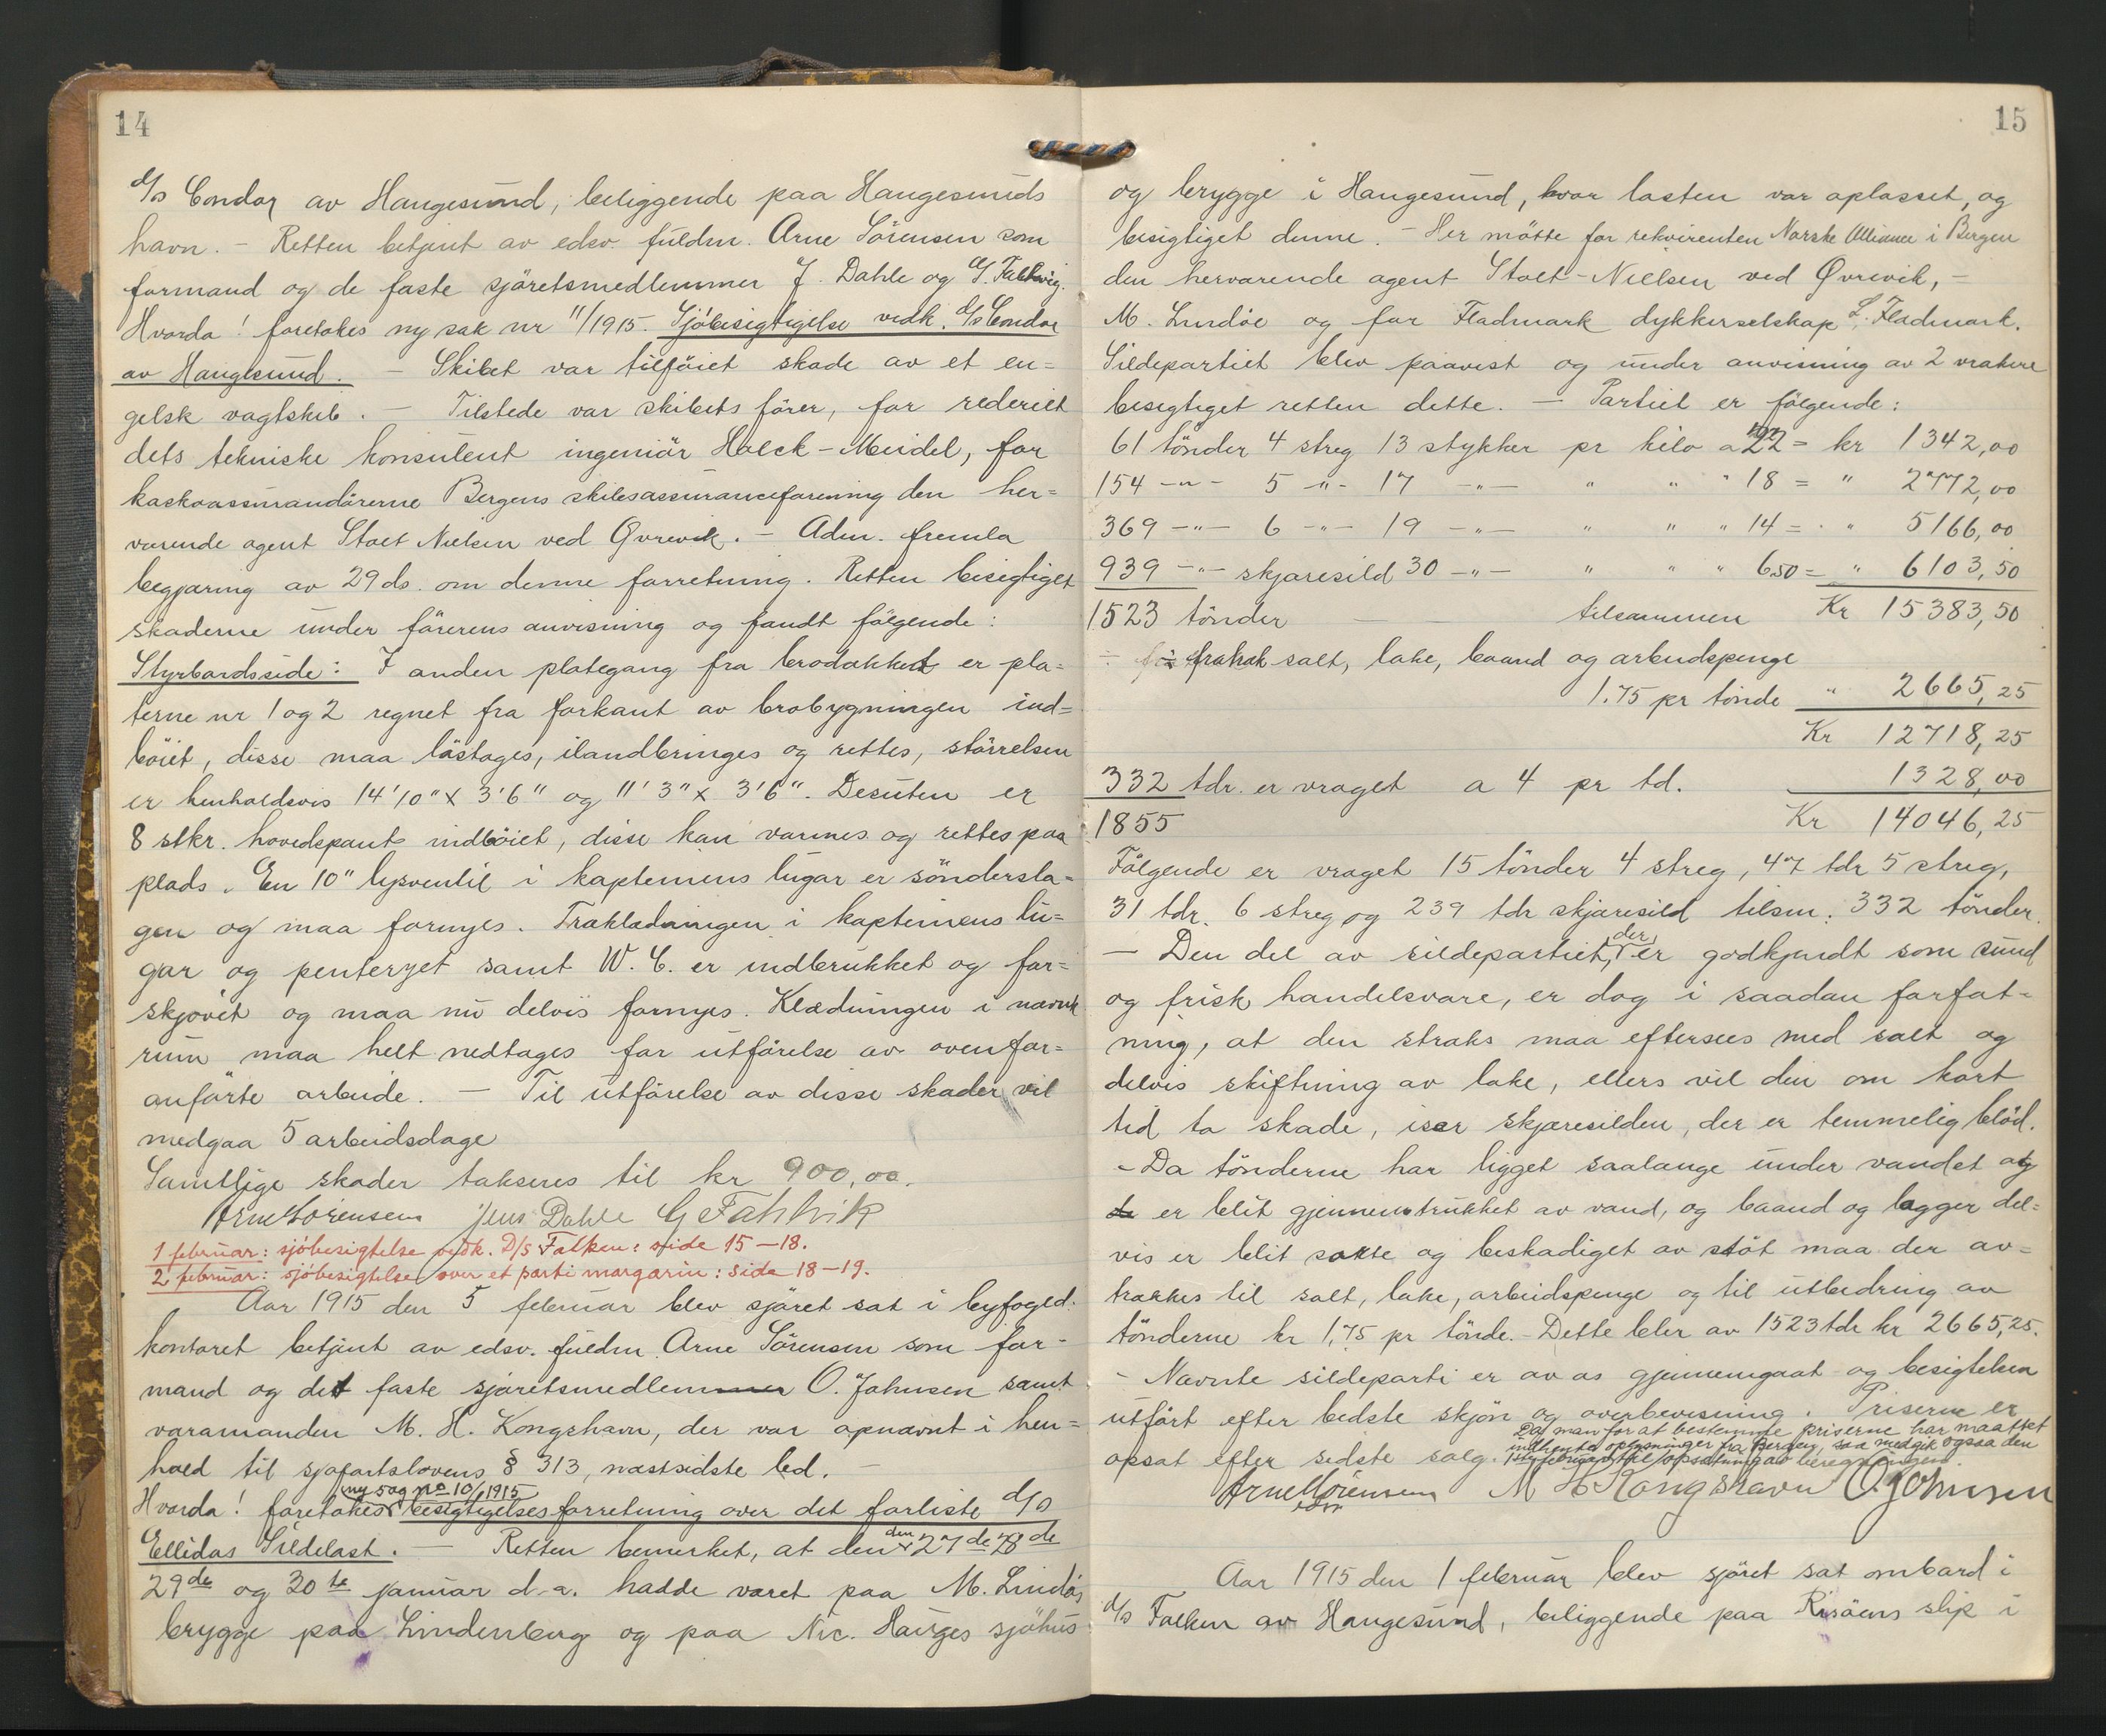 14
d/s Condor av Haugesund, beliggende paa Haugesunds
havn. – Retten betjent av edsv. fuldm. Arne Sörensen som
formand og de faste sjöretsmedlemmer J. Dahle og G. Falkevig.
Hvorda! foretokes ny sak nr 11/1915. Sjöbesigtigelse vedk. d/s Condor
av Haugesund. – Skibet var tilföiet skade av et en=
gelsk vagtskib. – Tilstede var skibets förer, for rederiet
dets tekniske konsulent ingeniör Halck-Meidel, for
kaskoassurandörerne Bergens skibsassuranceforening den her=
værende agent Stolt Nielsen ved Øvrevik. – Adm. fremla
begjæring av 29 ds. om denne forretning. Retten besigtiget
skaderne under förerens anvisning og fandt fölgende:
Styrbordsside: I anden plategang fra brodækket er pla=
terne nr 1 og 2 regnet fra forkant av brobygningen ind=
böiet, disse maa lästages, ilandbringes og rettes, störrelsen
er henholdsvis 14'10" x 3'6" og 11'3" x 3'6". Desuten er
8 stkr. hovedspant indböiet, disse kan varmes og rettes paa
plads. En 10" lysventil i kapteinens lugar er söndersla=
gen og maa fornyes. Trækledningen i kapteinens lu=
gar og penteryet samt W.C. er indtrukket og for=
skjövet og maa nu delvis fornyes. Klædningen i navnk
rum maa helt nedtages for utförelse av ovenfor=
anförte arbeide. – Til utförelse av disse skader vil
medgaa 5 arbeidsdage
Samtlige skader takseres til kr 900,00.
Arne Sörensen Jens Dahle G Falkevik
1 februar: sjöbesigtelse vedk. D/S Falken: side 15–18.
2 februar: sjöbesigtelse over et parti margarin: side 18–19.
Aar 1915 den 5 februar blev sjöret sat i byfoged-
kontoret betjent av edsv. fuldm. Arne Sörensen som for-
mand og det faste sjöretsmedlemmer O. Johnsen samt
varamanden M. H. Kongshavn, der var opnævnt i hen=
hold til sjöfartslovens § 313, næstsidste led. –
ny sag no 10/1915
Hvorda! foretokes besigtigelsesforretning over det forliste d/s
Ellidas Sildelast. – Retten bemerket, at den den 27de 28de
29de og 30te januar d.a. hadde været paa M. Lindös
brygge paa Lindenberg og paa Nic. Hauges sjöhus
15
og brygge i Haugesund, hvor lasten var oplosset, og
besigtiget denne. – Her mötte for rekvirenten Norske Alliance i Bergen
den herværende agent Stolt-Nielsen ved Øvrevik, –
M. Lindöe og for Fladmark dykkerselskap L. Fladmark.
Sildepartiet blev paavist og under anvisning av 2 vrakere
besigtiget retten dette. – Partiet er fölgende:
61 tönder 4 streg 13 stykker pr kilo a kr 22 = kr 1342,00
154 –"– 5 –"– 17 –"– " " " 18 = " 2772,00
369 –"– 6 –"– 19 –"– " " " 14 = " 5166,00
939 –"– skjæresild 30 –"– " " " 6.50 = " 6103,50
1523 tönder – – tilsammen Kr 15383,50
÷ fratrak salt, lake, baand og arbeidspenge
1.75 pr tönde " 2665,25
Kr 12718,25
332 tdr. er vraget a 4 pr td. 1328,00
1855 Kr 14046,25
Fölgende er vraget 15 tönder 4 streg, 47 tdr 5 streg,
31 tdr. 6 streg og 239 tdr skjæresild tilsm. 332 tönder.
– Den del av sildepartiet, der er godkjendt som sund
og frisk handelsvare, er dog i saadan forfat=
ning, at den straks maa eftersees med salt og
delvis skiftning av lake, ellers vil den om kort
tid ta skade, især skjæresilden, der er temmelig blöd.
– Da tönderne har ligget saalænge under vandet og
de er blit gjennemtrukket av vand, og baand og lægger del=
vis er blit sakte og beskadiget av stöt maa der av=
trækkes til salt, lake, arbeidspenge og til utbedring av
tönderne kr 1,75 pr tönde. – Dette blir av 1523 tdr kr 2665,25.
– Nævnte sildeparti er av os gjennemgaat og besigtelsen
utfört efter bedste skjön og overbevisning. Priserne er
opsat efter sidste salg. Da man for at bestemme priserne har maattet
indhente oplysninger fra Bergen, saa medgik ogsaa den
1ste februar til opsætning av beregningen.
Arne Sörensen M H Kongshavn O. Johnsen
Aar 1915 den 1 februar blev sjöret sat ombord i
d/s Falken av Haugesund, beliggende paa Risöens slip i